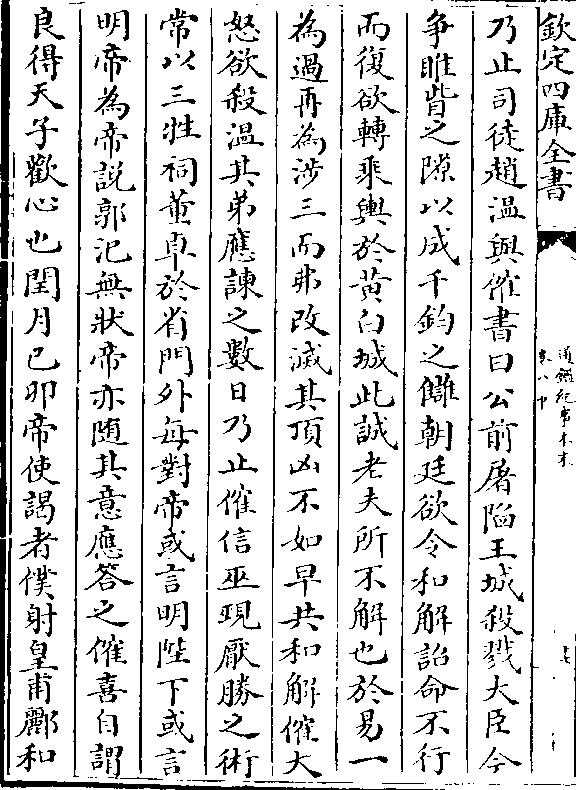 欽定四庫全書
通鑑紀事本末
卷八中
乃止司徒趙温與傕書曰公前屠陷王城殺戮大臣今
爭睢眥之隙以成千鈞之讎朝廷欲令和解詔命不行
而復欲轉乘輿於黄白城此誠老夫所不解也於易一
為過再為涉三而弗改滅其頂凶不如早共和解傕大
怒欲殺温其弟應諫之數日乃止傕信巫覡厭勝之術
常以三牲祠董卓於省門外每對帝或言明陛下或言
明帝為帝説郭汜無狀帝亦随其意應答之傕喜自謂
良得天子歡心也閏月己卯帝使謁者僕射皇甫酈和